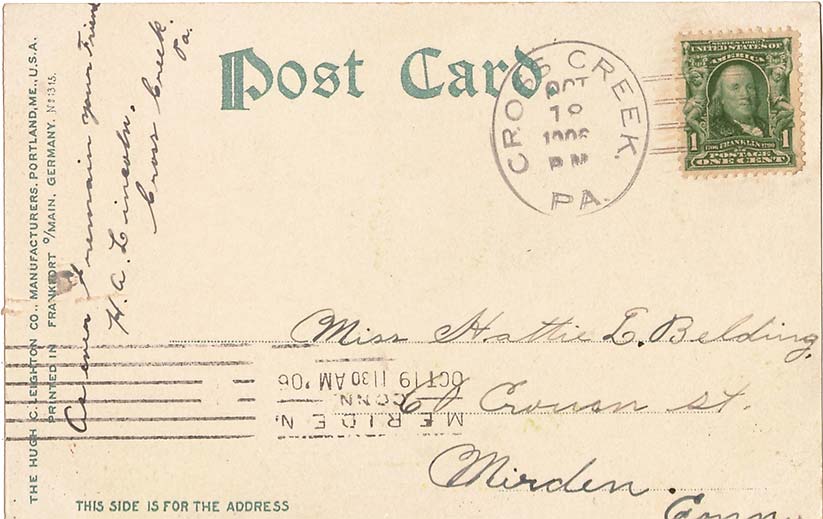 Post Card
CROSS CREEK,
OCT
18
1906
PM
PA.
SERIES 1902
UNITED STATES OF
AMERICA
1 1
1706 FRANKLIN 1790
POSTAGE
ONE CENT
THE HUGH C. LEIGHTON CO., MANUFACTURERS, PORTLAND, ME., U.S.A.
PRINTED IN FRANKFORT O/MAIN, GERMANY. No 1315.
As ever I remain your Friend
H. A. Lincoln.
Cross Creek.
Pa.
Miss Hattie E. Belding,
61 Crown St.
Mirden.
Conn.
MERIDEN.
CONN.
OCT 19 1130 AM '06
THIS SIDE IS FOR THE ADDRESS